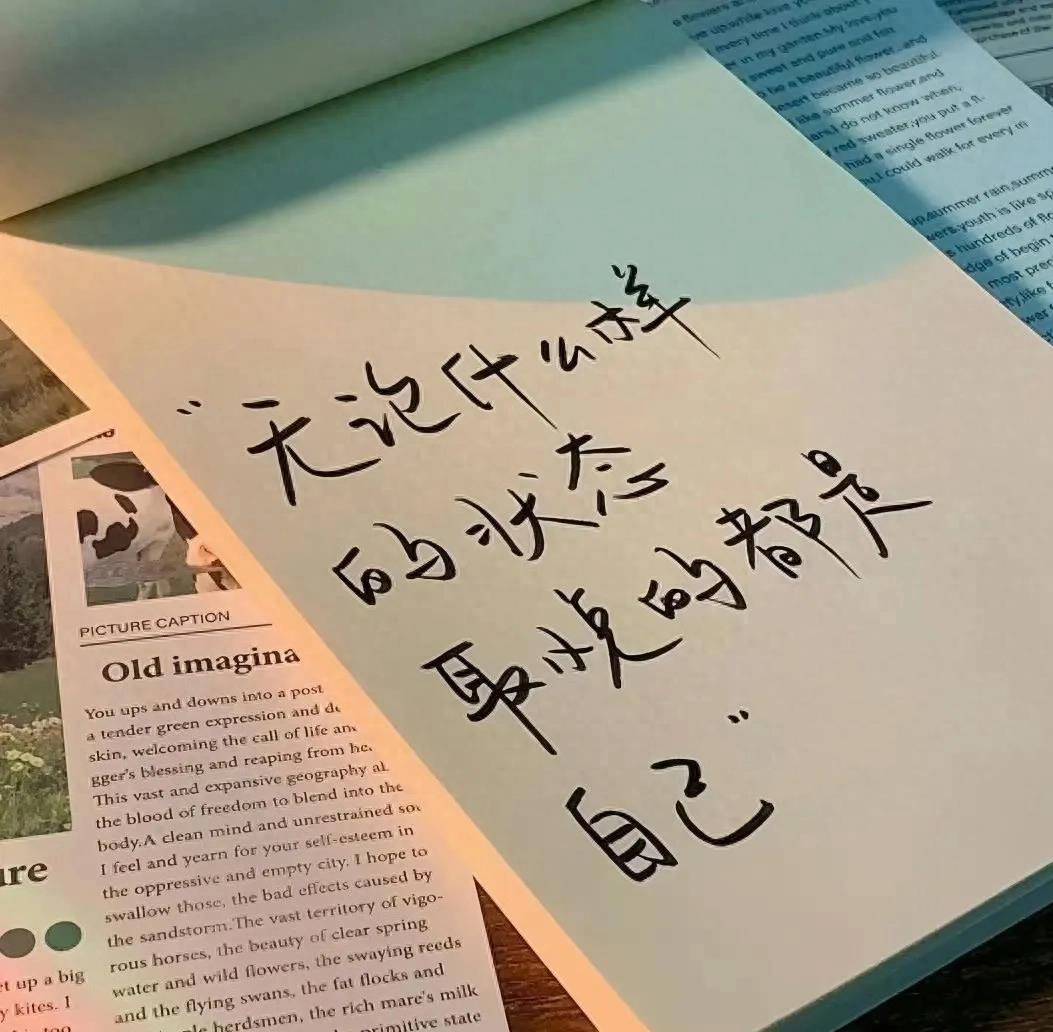 “无论什么样
的状态
取悦的都是
自己”
PICTURE CAPTION
Old imagina
You ups and downs into a post
a tender green expression and de
skin, welcoming the call of life an
gger's blessing and reaping from he
This vast and expansive geography al
the blood of freedom to blend into the
body.A clean mind and unrestrained sou
I feel and yearn for your self-esteem in
the oppressive and empty city. I hope to
swallow those, the bad effects caused by
the sandstorm.The vast territory of vigo-
rous horses, the beauty of clear spring
water and wild flowers, the swaying reeds
and the flying swans, the fat flocks and
herdsmen, the rich mare's milk
primitive state
ure
t up a big
y kites. I
too
every time I think about
in my garden.My love,you
sweet and pure and felt
be a beautiful flower, and
desert became so beautiful
like summer flower,and
and,I do not know when,
red sweater,you put a fl
had a single flower forever
I could walk for every m
up,summer rain,summ
wers.youth is like sp
hundreds of flo
dge of begin
most prec
like f